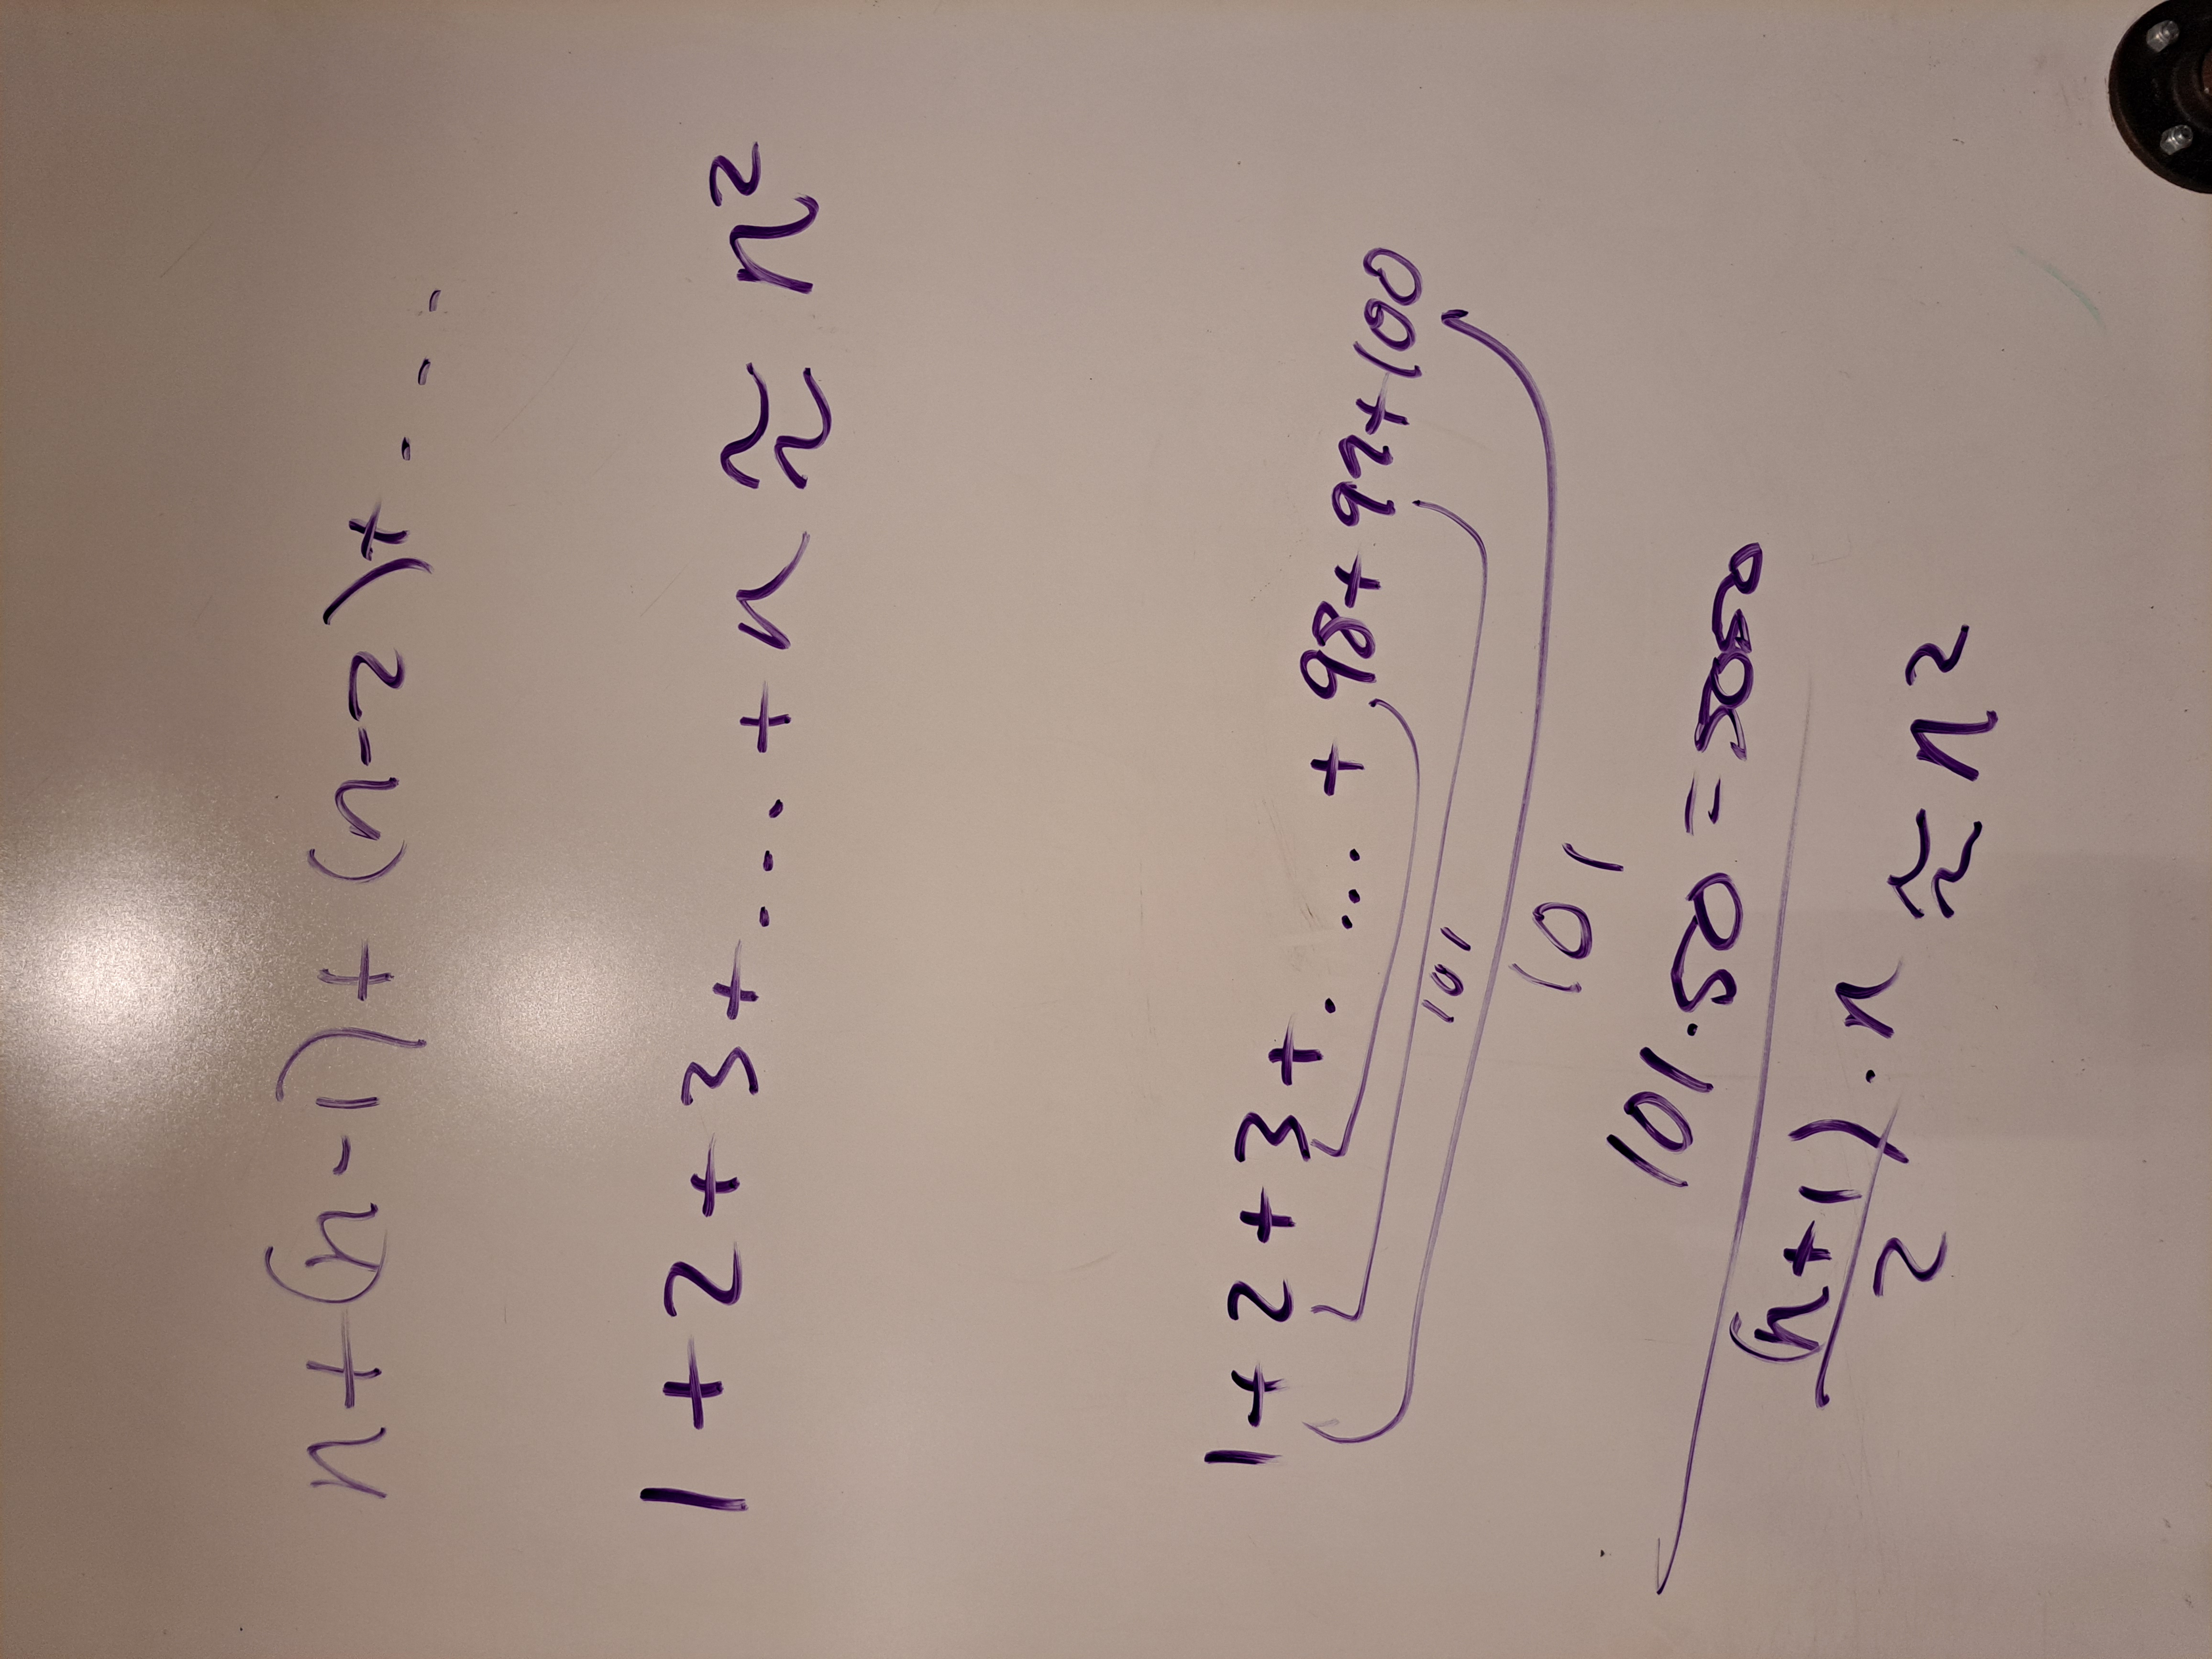 n+(n-1)+(n-2)+...
1+2+3+...+n ≈ n²
1+2+3+....+98+99+100
101
101
101·50=5050
(n+1)/2·n ≈ n²